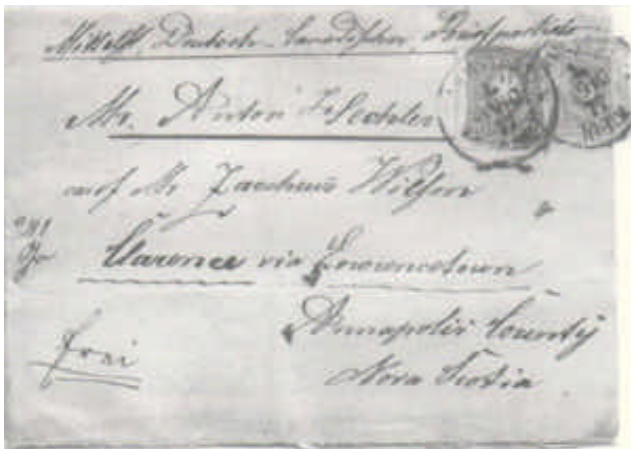 Mittelst Deutsch-Canadischer Briefpacketes
Mr. Anton Z. Sechler
care of Mr Zaccheus Wilson
Clarence via Lawrencetown
Annapolis County
Nova Scotia
frei